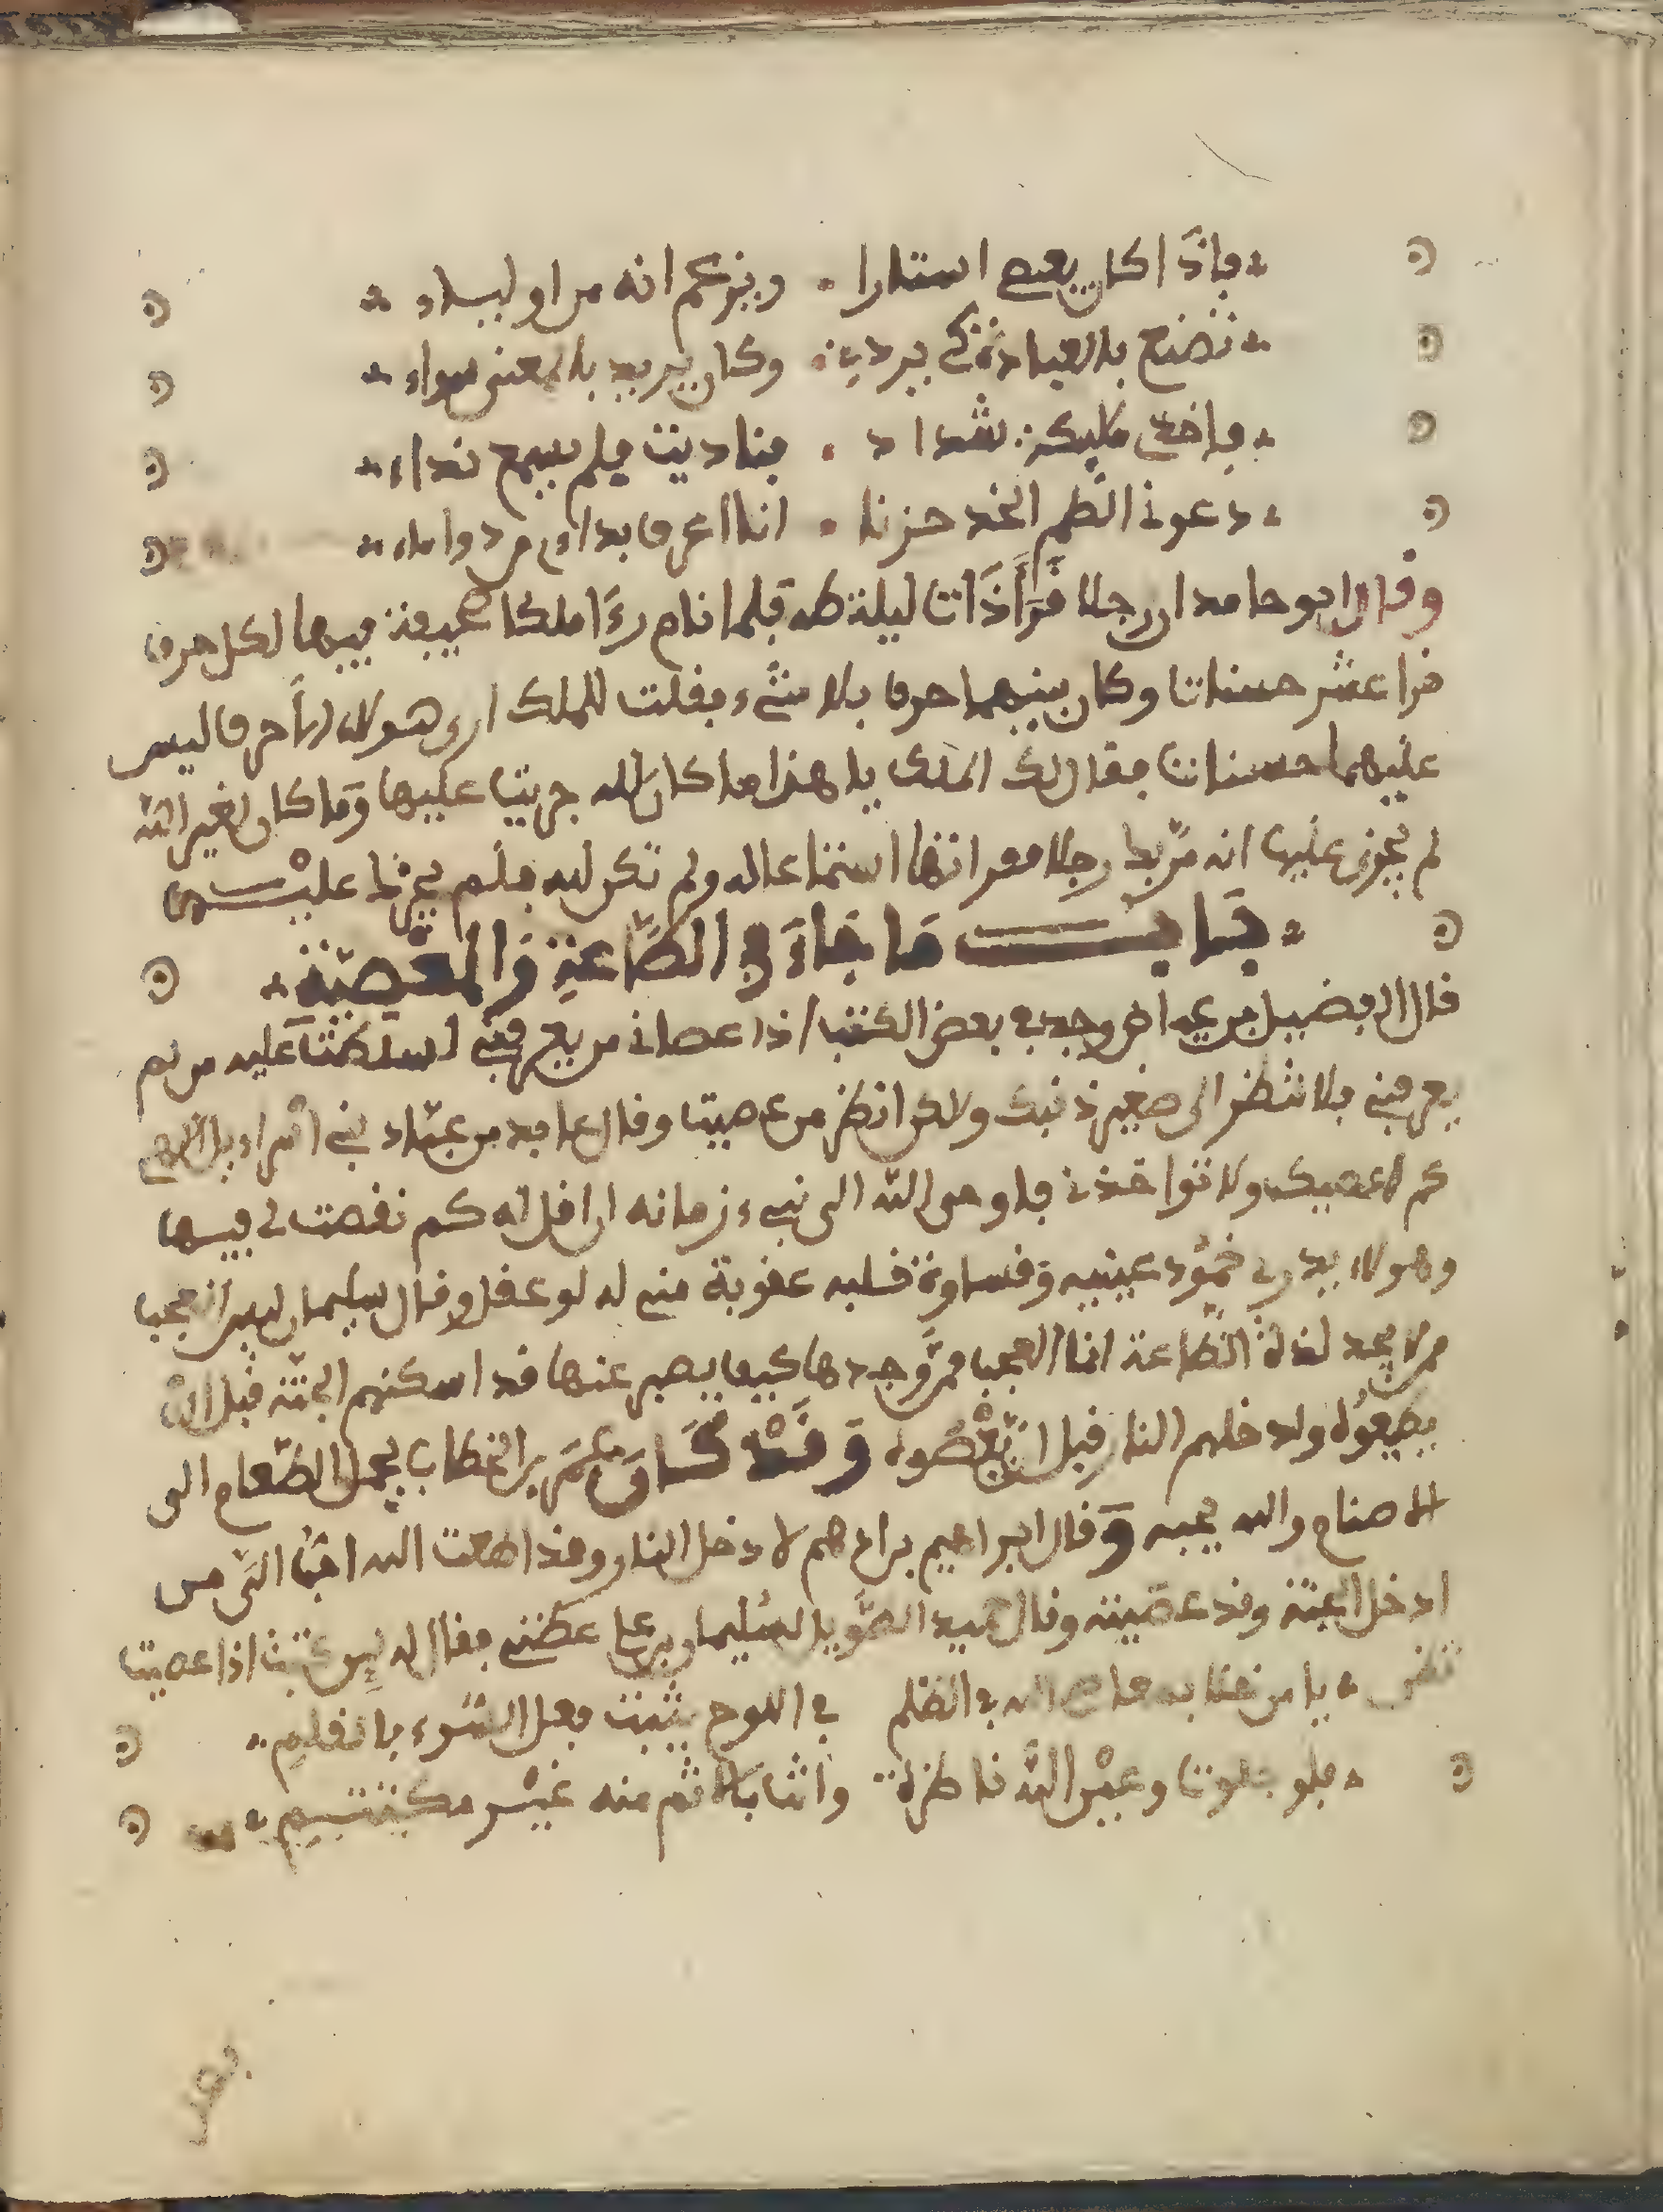 فإذا كان يعصى استتارا ويزعم انه من اولياء
تصنع بالعبادة كي يرديه وكان يريد بالمعنى سواء
شداد فناديت فلم يسمع نداء
دعوني الطم الخد حزنا انا اعرف بداي من دواء
وقال ابو حامد ان رجلا قرأ ذات ليلة طه فلما نام رءا ملكا صحيفة فيها لكل حرف
قرا عشر حسنات وكان بينهما حرف بلا شيء فقلت للملك ارى هولاء حرف ليس
عليهما حسنات فقال لك الملك يا هذا ما كان لله جريت عليها وما كان لغير الله
لم يجزى عليها انه مر بك رجلا فقراتها استماعا له ولم تكن لله فلم
باب ما جاء في الطاعة والمعصية
قال الفضيل بن عياض وجد في بعض الكتب اذا عصاني من يعرفني سلطت عليه من لم
يعرفني فلا تنظر الى صغير ذنبك ولكن انظر من عصيت وقال عابد من عباد بني اسراءيل الاهي
كم اعصيك ولا تواخذني فاوحى الله الى نبيء زمانه ان قل له كم نقصت لي فيها
وهو لا يدري جمود عينيه وقساوة قلبه عقوبة مني له لو عقل وقال سليمان ليس العجب
ممن لا يجد لذة الطاعة انما العجب ممن وجدها كيف يصبر عنها قد اسكنهم الجنة قبل ان
يطيعوه وادخلهم النار قبل ان يعصوه وقد كان عمر بن الخطاب يحمل الطعام الى
الاصنام والله يحبه وقال ابراهيم بن ادهم لا دخل النار وقد اطعت الله احب الي من
ادخل الجنة وقد عصيته وقال حميد الطويل لسليمان بن علي عظني فقال له لين كنت اذا عصيت
يا من الله في الظلم في اللوح يثبت فعل السوء بالقلم
فلو خلوت وعين الله ناظرة وانت بالاثم منه غير مكتتم